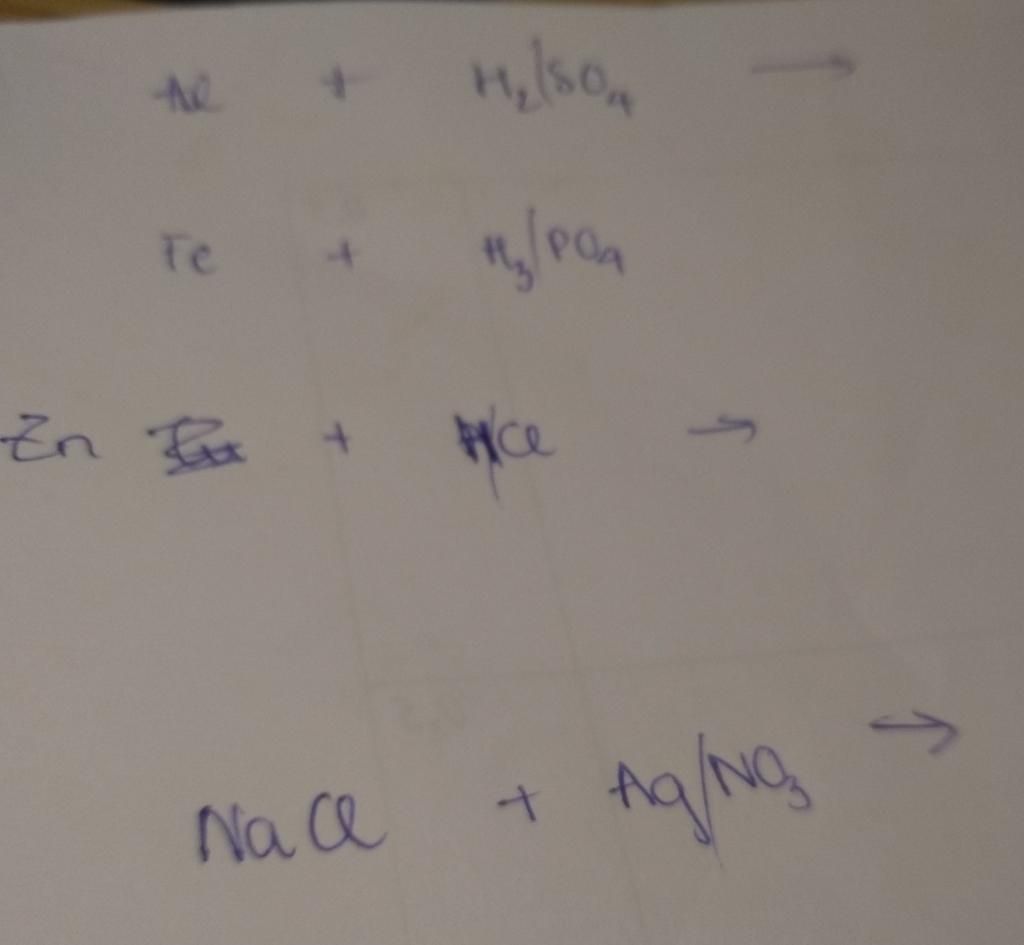 Al + H₂/SO₄ →
Fe + H₃/PO₄
Zn + H/Cl →
NaCl + Ag/NO₃ →